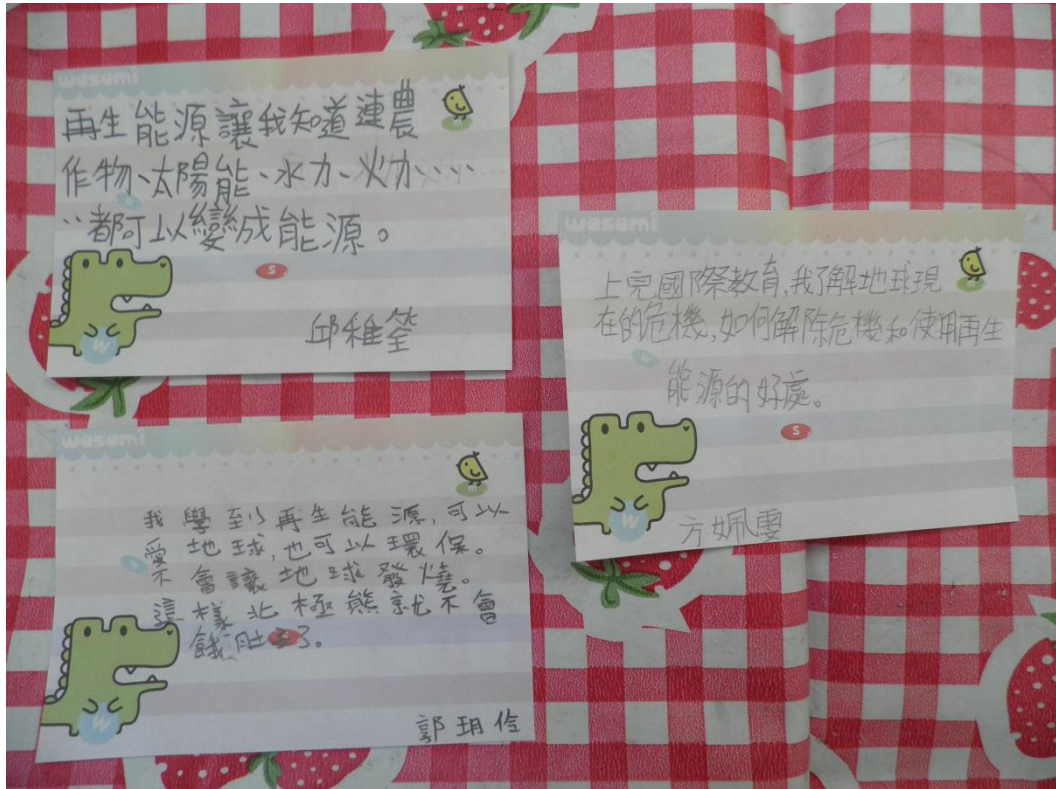 wesemi
再生能源讓我知道連農
作物、太陽能、水力、火力、、、
、、都可以變成能源。
S
W
邱稚筌
wesemi
上完國際教育,我了解地球現
在的危機,如何解除危機和使用再生
能源的好處。
S
W
方姵雯
wesemi
我學到再生能源,可以
愛地球,也可以環保。
不會讓地球發燒。
這樣北極熊就不會
餓肚子了。
W
郭玥伶